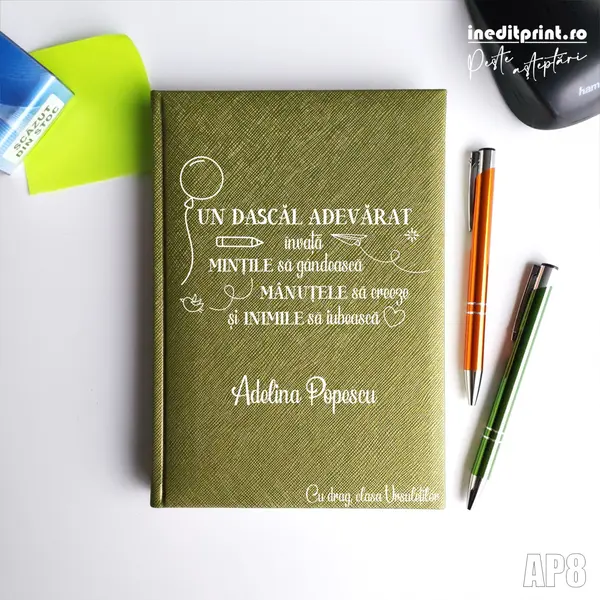 ineditprint.ro
Peste așteptări
SCĂZUT
DIN STOC
ham
UN DASCĂL ADEVĂRAT
învață
MINȚILE să gândească
MÂNUȚELE să creeze
și INIMILE să iubească
Adelina Popescu
Cu drag, clasa Ursuleților
AP8